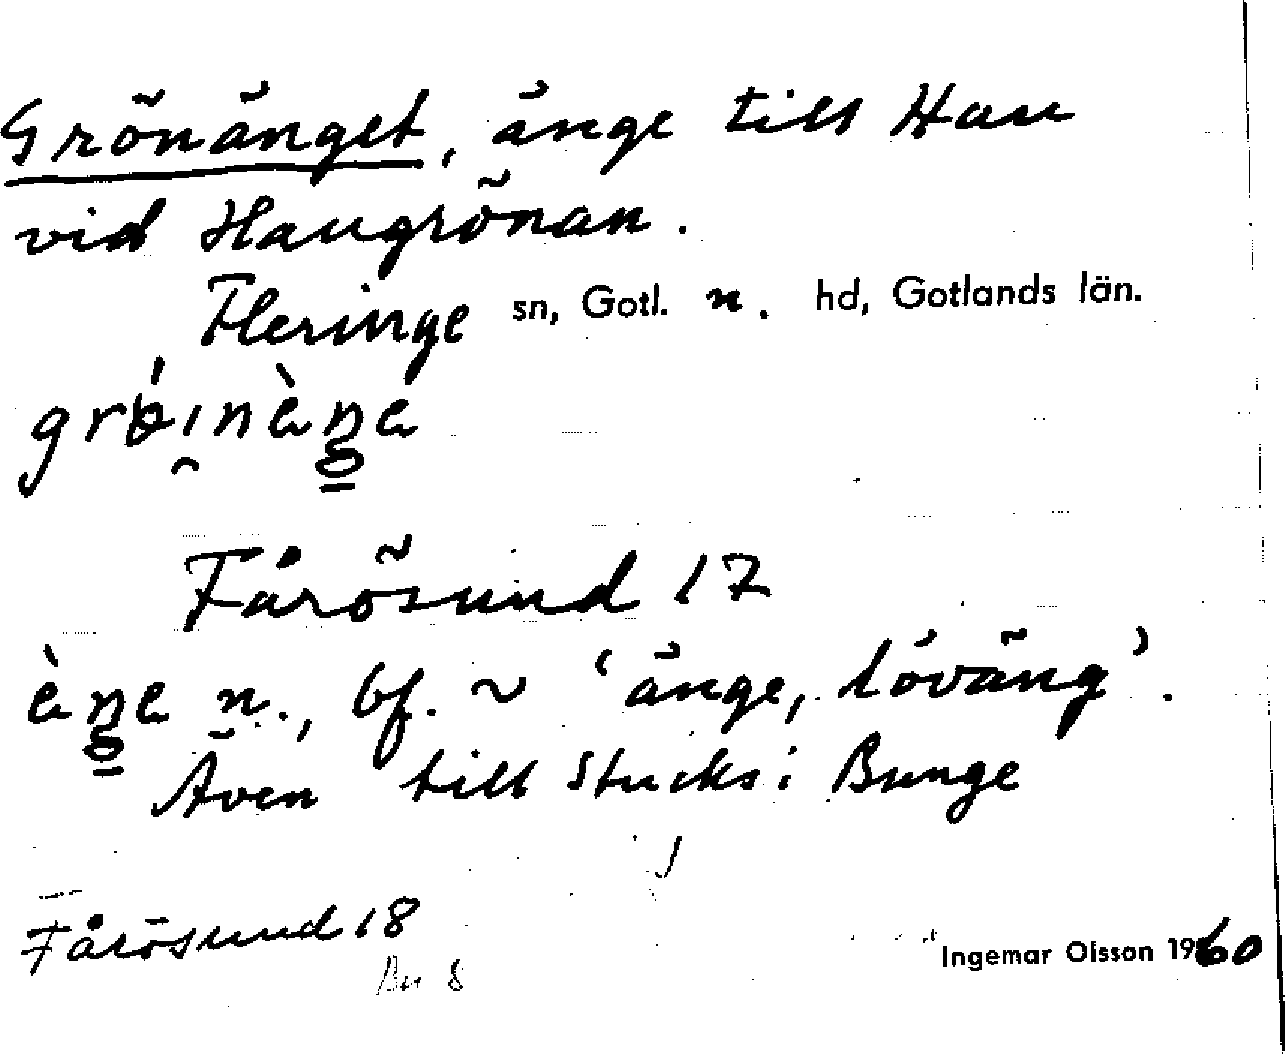 Grönänget, änge till Hau
vid Haugrönan.
Fleringe sn, Gotl. n. hd, Gotlands län.
Fårösund 17
n., bf. ~ 'änge, löväng'.
Även till Stucks i Bunge
Fårösund 18
Bu 8
Ingemar Olsson 1960